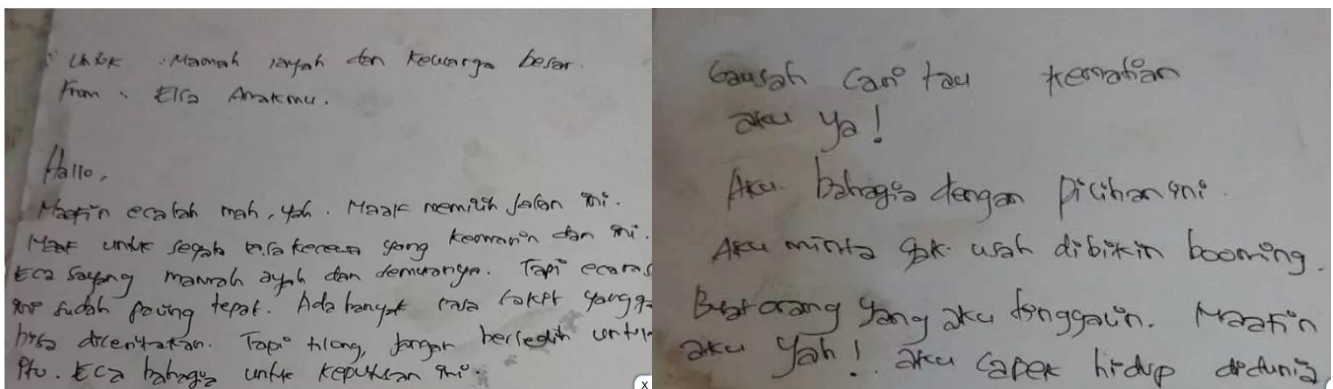 Untuk : Mamah ayah dan keluarga besar.
From : Elsa Anakmu.
Hallo,
Maafin eca lah mah, yah. Maaf memilih jalan ini.
Maaf untuk segala rasa kecewa yang kemarin dan ini.
Eca sayang mamah ayah dan semuanya. Tapi eca ras
ini sudah paling tepat. Ada banyak rasa sakit yang ga
bisa diceritakan. Tapi tlong, jangan bersedih untuk
itu. Eca bahagia untuk keputusan ini.
Gausah cari tau kematian
aku ya!
Aku bahagia dengan pilihan ini.
Aku minta gak usah dibikin booming.
Buat orang yang aku tinggalin. Maafin
aku yah! aku capek hidup didunia